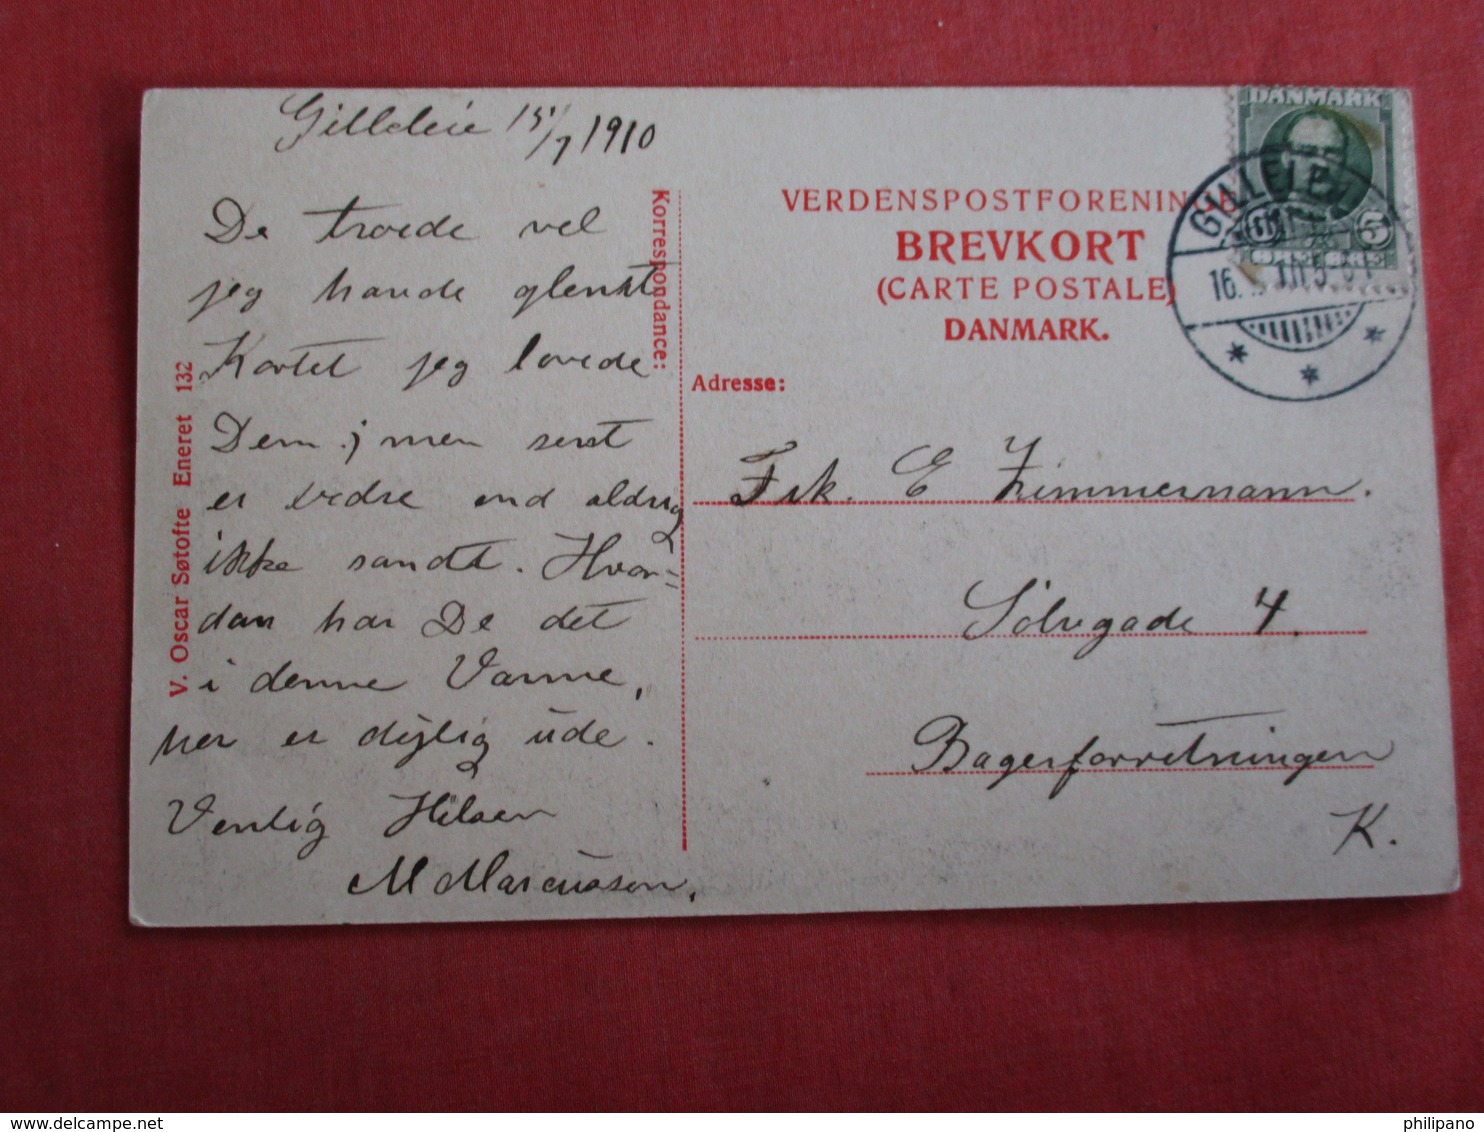 Gilleleie 15/7 1910
De troede vel
jeg havde glemt
Kortet jeg lovede
Dem; men sent
er bedre end aldrig
ikke sandt. Hvor=
dan har De det
i denne Varme,
her er dejlig ude.
Venlig Hilsen
M Marcussen.
Korrespondance:
V. Oscar Søtofte Eneret 132
VERDENSPOSTFORENINGE
BREVKORT
(CARTE POSTALE)
DANMARK.
Adresse:
Frk. E Zimmermann.
Sölvgade 4.
Bagerforretningen
K.
DANMARK
5 5
ØRE ØRE
GILLELEJE
16. 10 5-6
delcampe.net
philipano